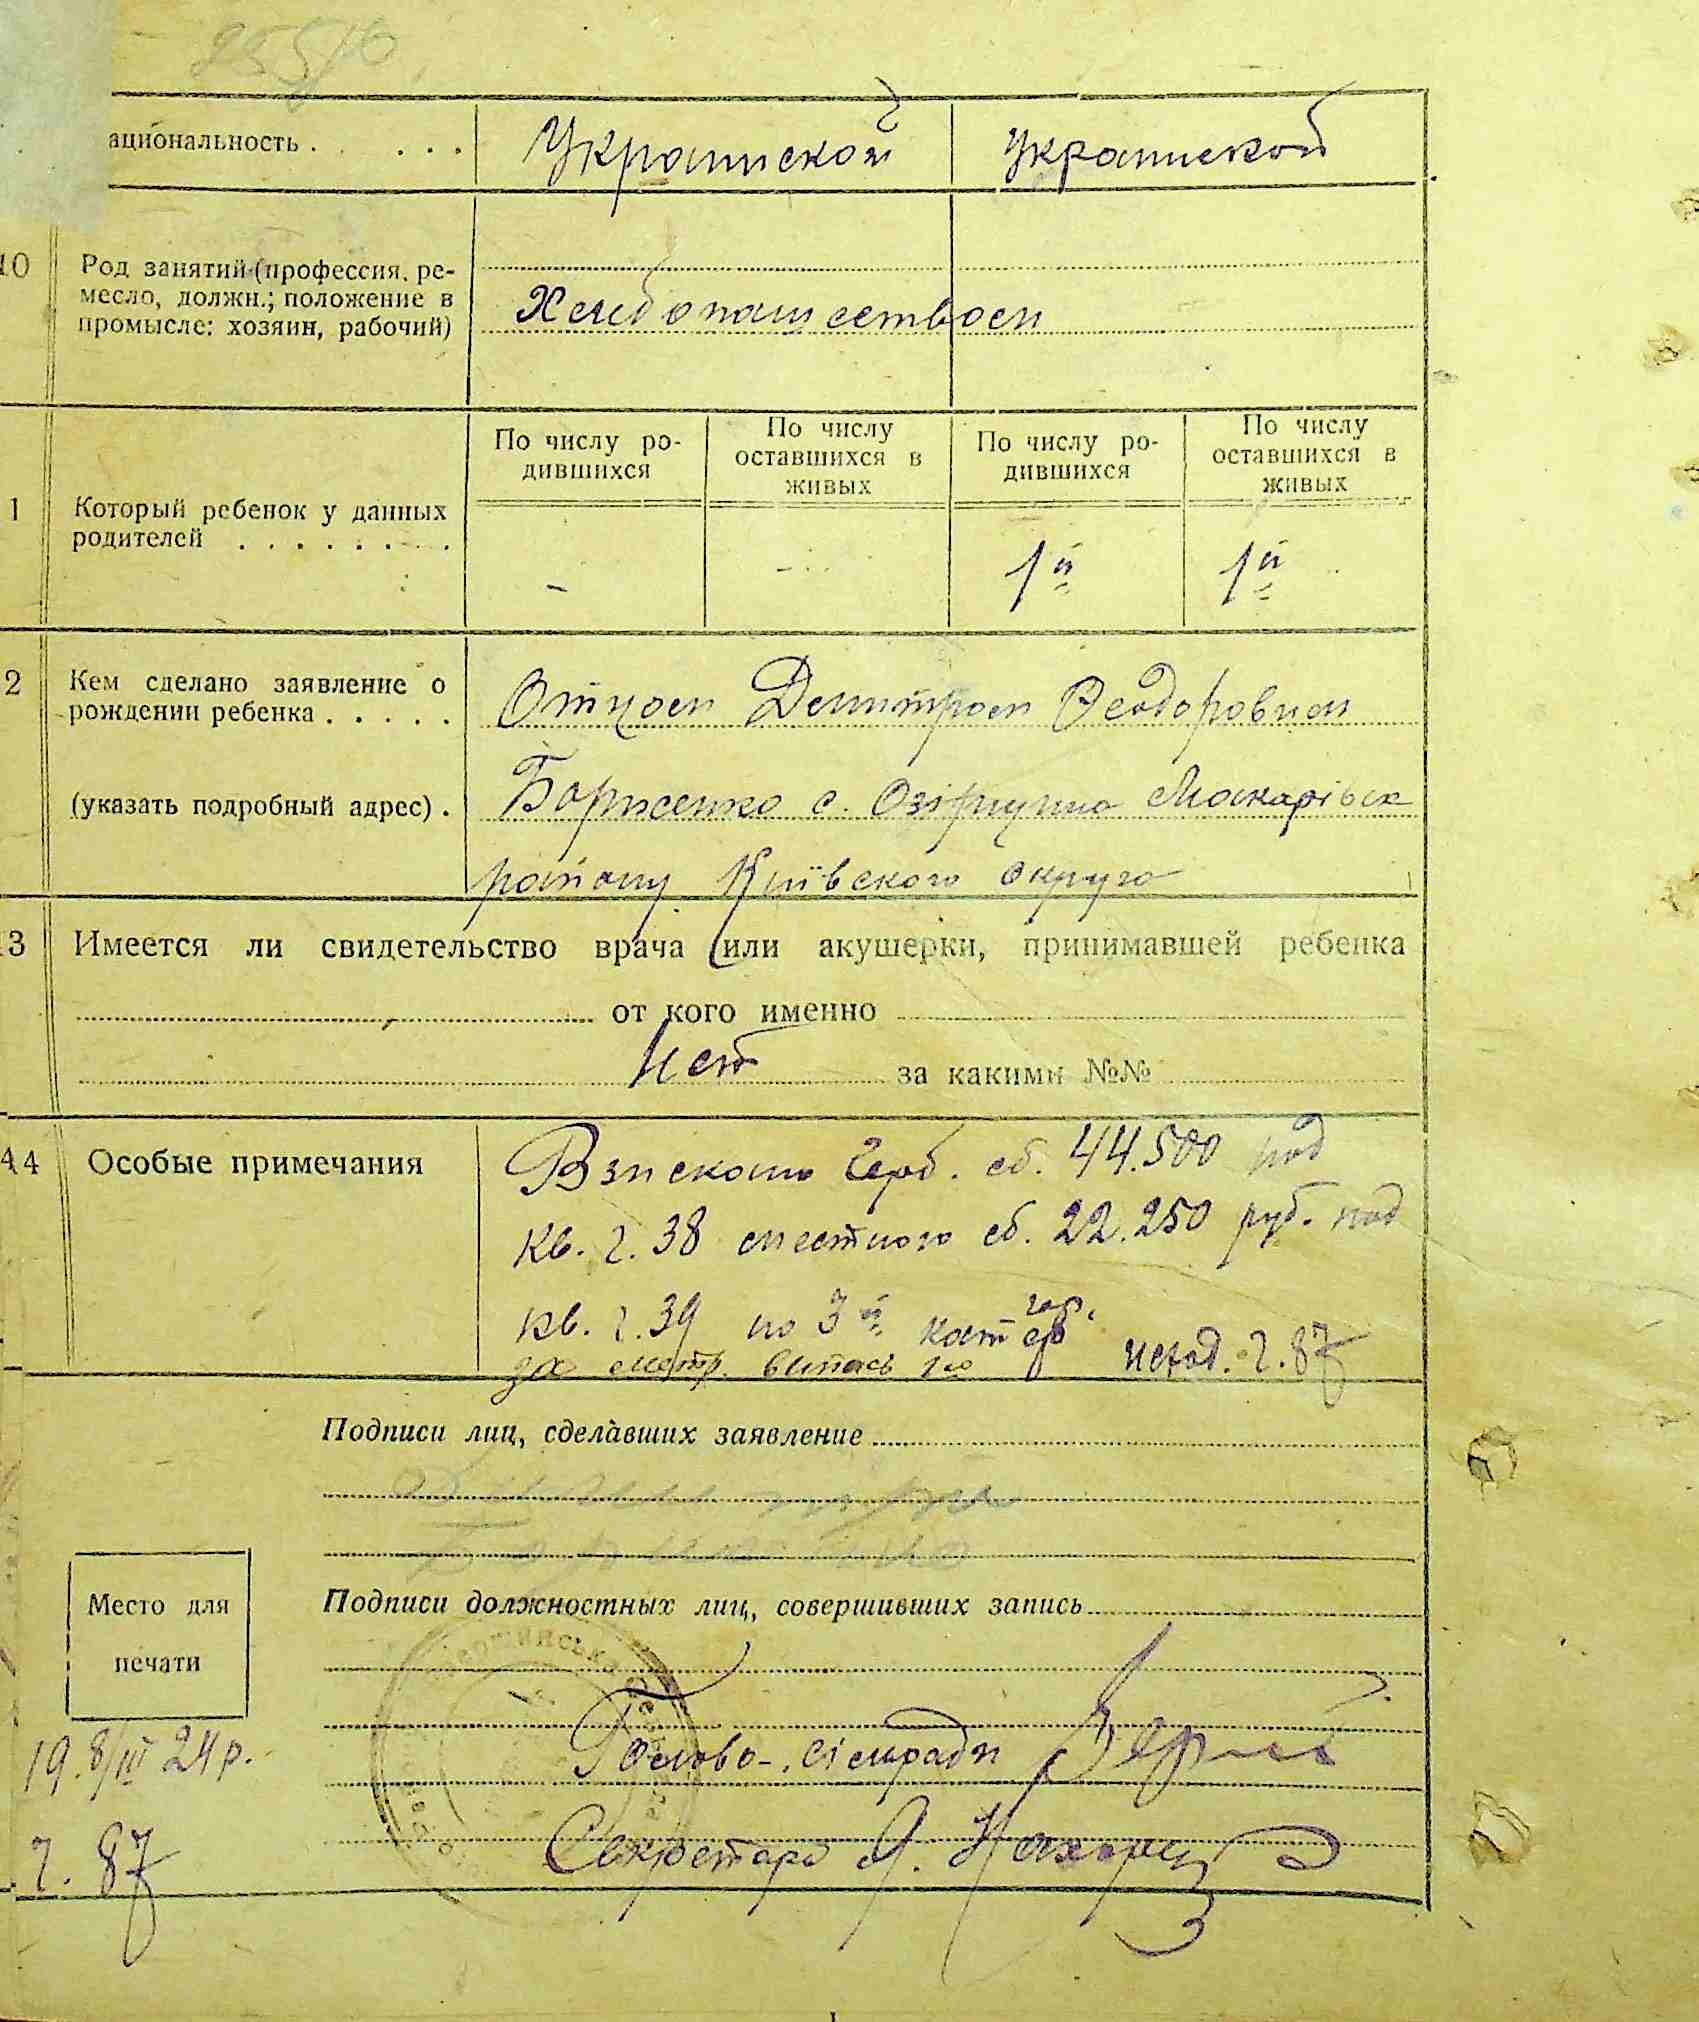 25510
ациональность . . . . .
Украинской Украинской
10 Род занятий (профессия, ре-
месло, должн.; положение в
промысле: хозяин, рабочий)
Хлебопашеством
По числу ро-
дившихся
По числу
оставшихся в
живых
По числу ро-
дившихся
По числу
оставшихся в
живых
1 Который ребенок у данных
родителей . . . . . . . .
- - 1й 1й
2 Кем сделано заявление о
рождении ребенка . . . . .
Отцом Демитром Феодоровым
(указать подробный адрес) .
Борисенко с. Озірщина Макарівск
району Київского округа
13 Имеется ли свидетельство врача или акушерки, принимавшей ребенка
от кого именно
Нет за какими №№
14 Особые примечания
Взискано герб. сб. 44.500 под
кв. г. 38 местного сб. 22.250 руб. под
кв. г. 39 по 3й кат гор.
за метр. выпись исход. г. 87
Подписи лиц, сделавших заявление
Подписи должностных лиц, совершивших запись
Место для
печати
19.8/III 24 р.
Голова сільради
Секретарь
г. 87